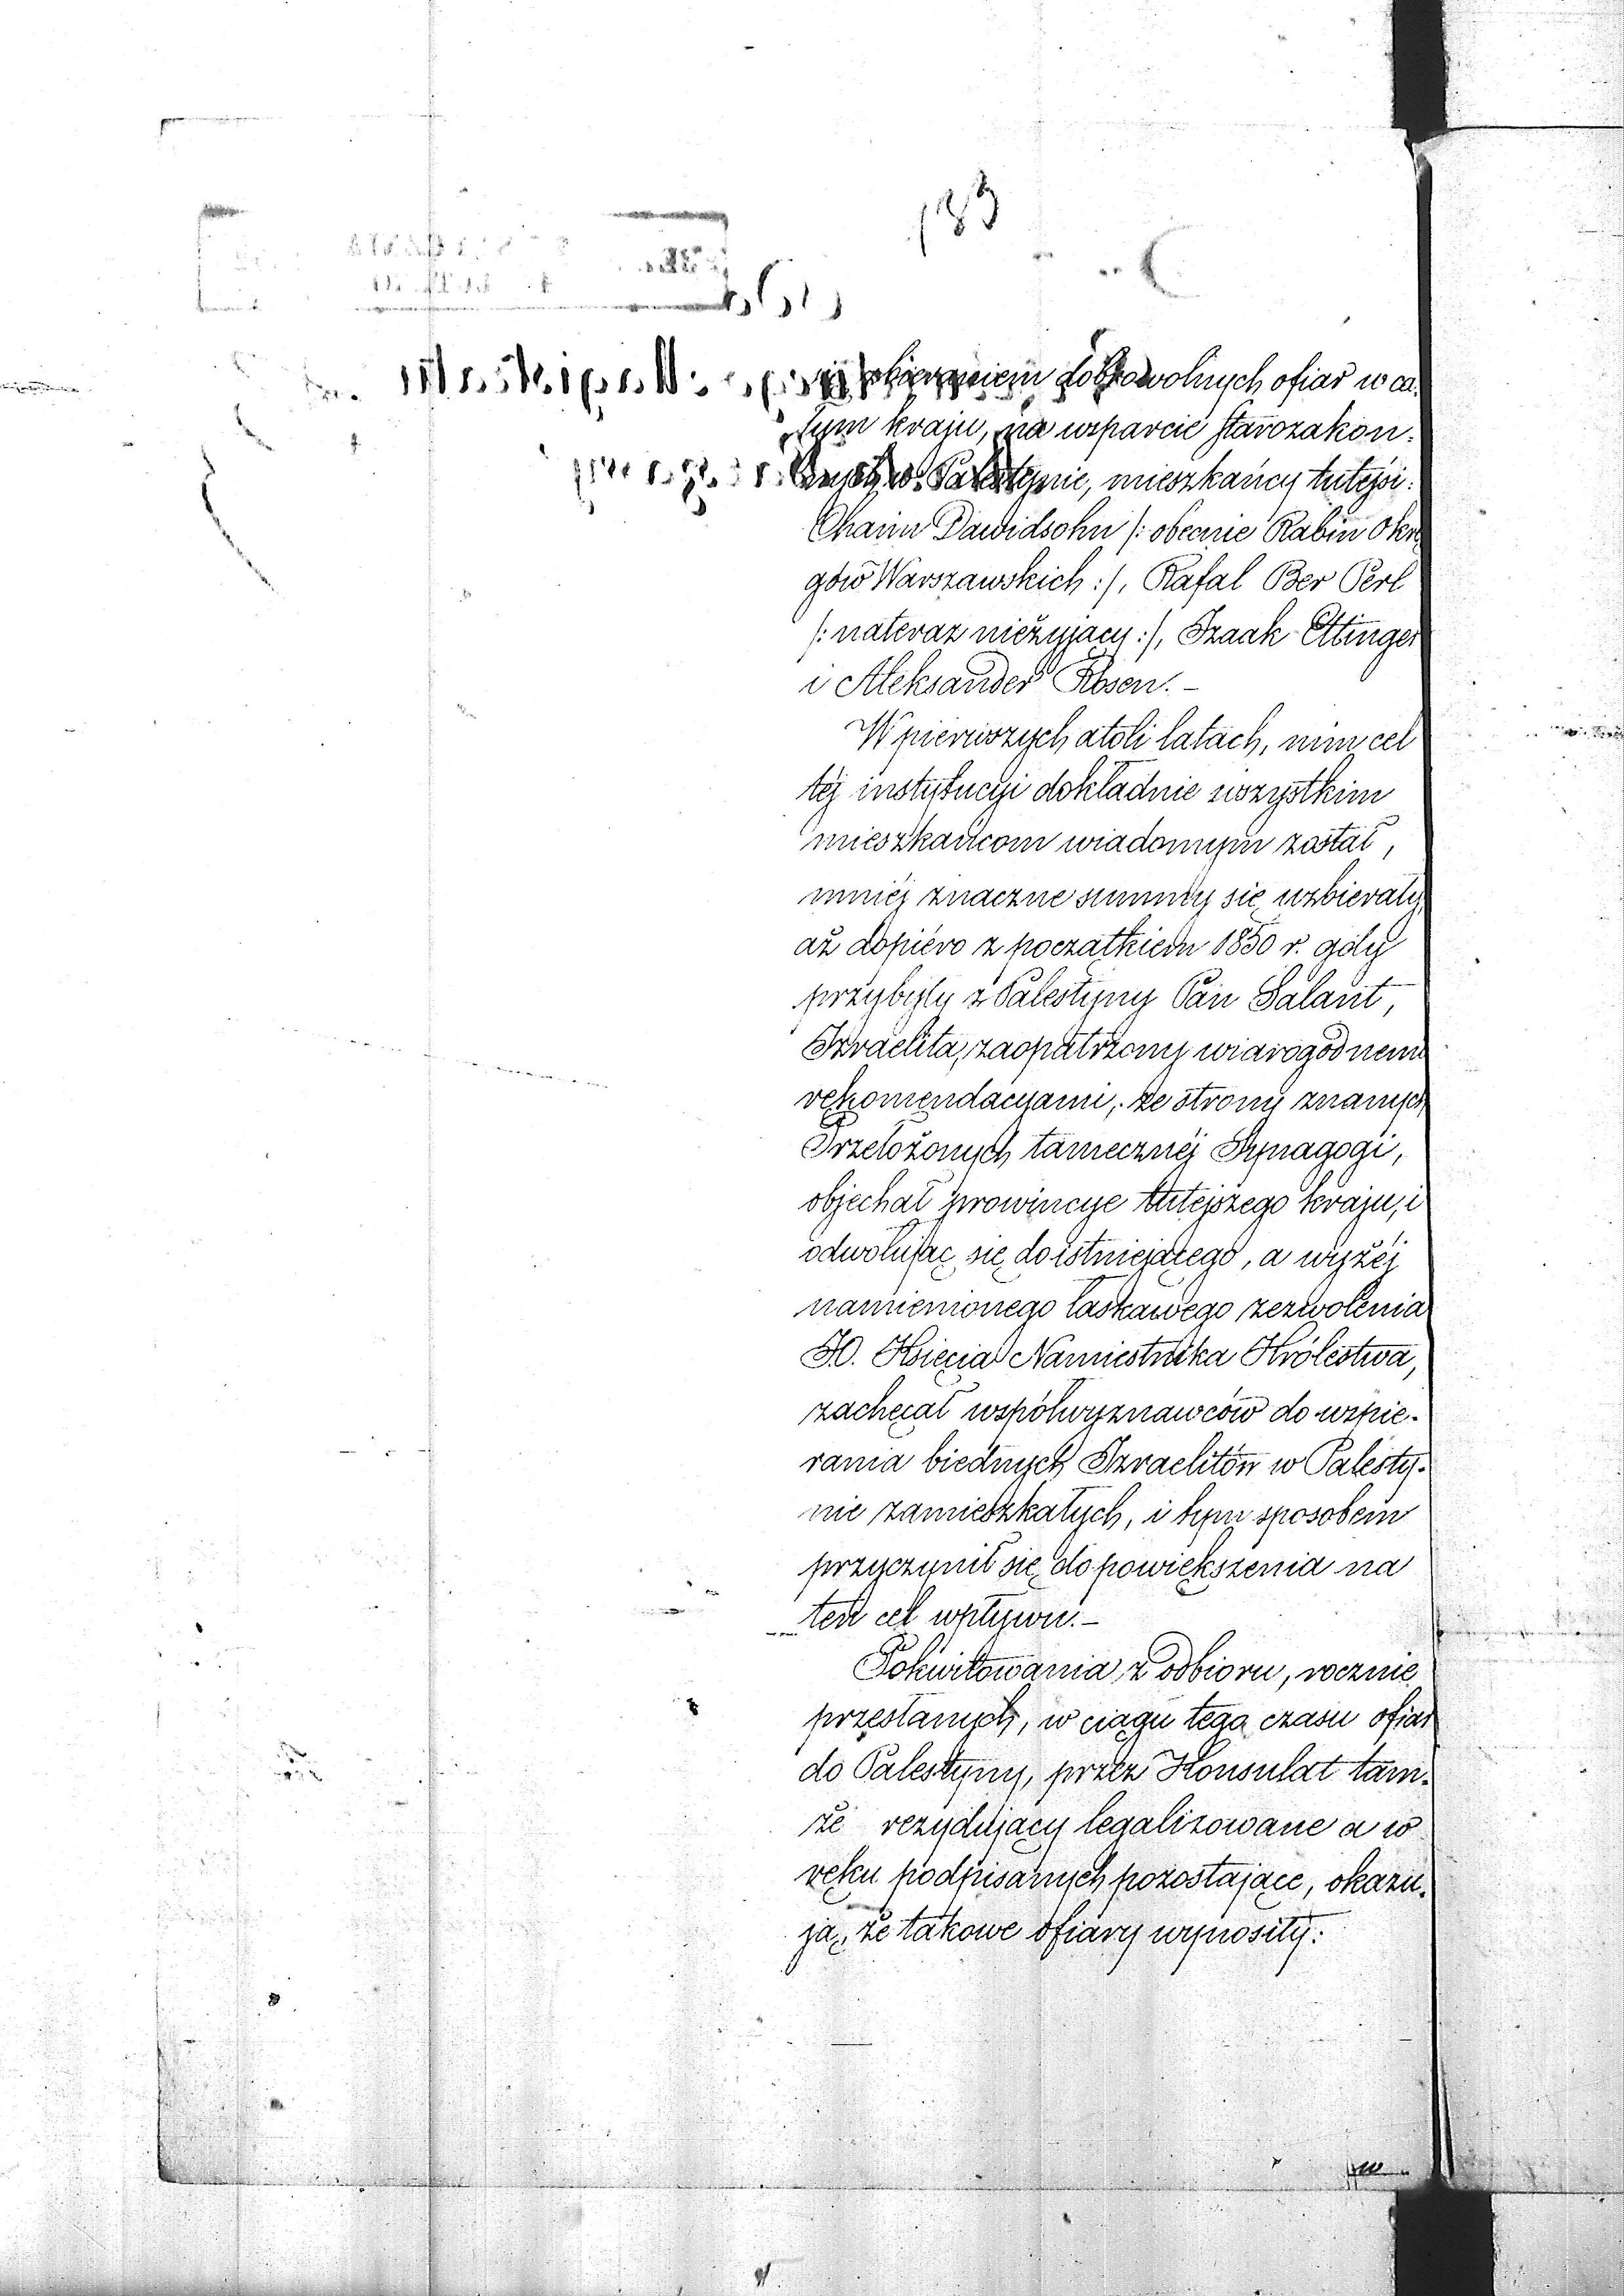 183
dobrowolnych ofiar w ca-
łym kraju, na wsparcie starozakon-
nych w Palestynie, mieszkańcy tutejsi:
Chaim Dawidsohn /: obecnie Rabin Okrę
gów Warszawskich :/, Rafal Ber Perl
/: nateraz nieżyjący :/, Izaak Ettinger
i Aleksander Rosen. –
W pierwszych atoli latach, nim cel
téj instytucyi dokładnie wszystkim
mieszkańcom wiadomym został,
mniéj znaczne summy się uzbierały,
aż dopiéro z początkiem 1850 r. gdy
przybyły z Palestyny Pan Salant,
Izraelita, zaopatrzony wiarogodnemi
rekomendacyami, ze strony znanych
Przełożonych tamecznéj Synagogi,
objechał prowincye tutejszego kraju, i
odwołując się do istniejącego, a wyżéj
namienionego łaskawego zezwolenia
JO. Księcia Namiestnika Królestwa,
zachęcał współwyznawców do wspie-
rania biednych Izraelitów w Palesty-
nie zamieszkałych, i tym sposobem
przyczynił się do powiększenia na
ten cel wpływu. –
Pokwitowania z odbioru, rocznie
przesłanych, w ciągu tego czasu ofiar
do Palestyny, przez Konsulat tam-
że rezydujący legalizowane a w
ręku podpisanych pozostające, okazu-
ją, że takowe ofiary wynosiły: